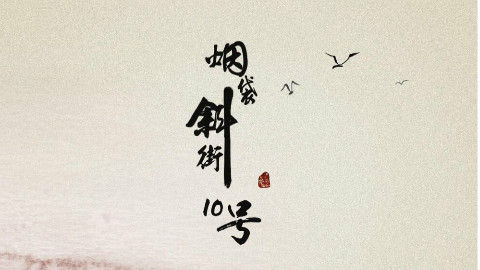 烟袋斜街10号